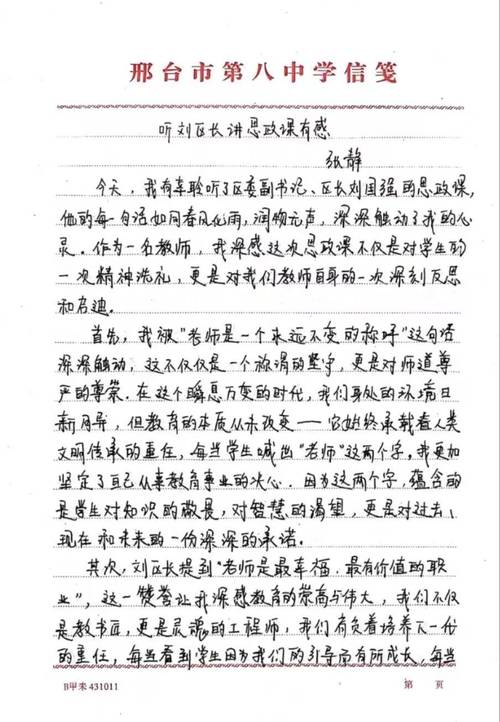 邢台市第八中学信笺
听刘区长讲思政课有感
张静
今天，我有幸聆听了区委副书记、区长刘国强的思政课，
他的每一句话如同春风化雨，润物无声，深深触动了我的心
灵。作为一名教师，我深感这次思政课不仅是对学生的
一次精神洗礼，更是对我们教师自身的一次深刻反思
和启迪。
首先，我被"老师是一个永远不变的称呼"这句话
深深触动，这不仅仅是一个称谓的坚守，更是对师道尊
严的尊崇。在这个瞬息万变的时代，我们身处的环境日
新月异，但教育的本质从未改变——它始终承载着人类
文明传承的重任，每当学生喊出"老师"这两个字，我更加
坚定了自己从事教育事业的决心。因为这两个字，蕴含的
是学生对知识的敬畏，对智慧的渴望，更是对过去、
现在和未来的一份深深的承诺。
其次，刘区长提到"老师是最幸福、最有价值的职
业"，这一赞誉让我深感教育的崇高与伟大，我们不仅
是教书匠，更是灵魂的工程师，我们肩负着培养下一代
的重任，每当看到学生因为我们的引导而有所成长，每当
B甲末 431011
第 页